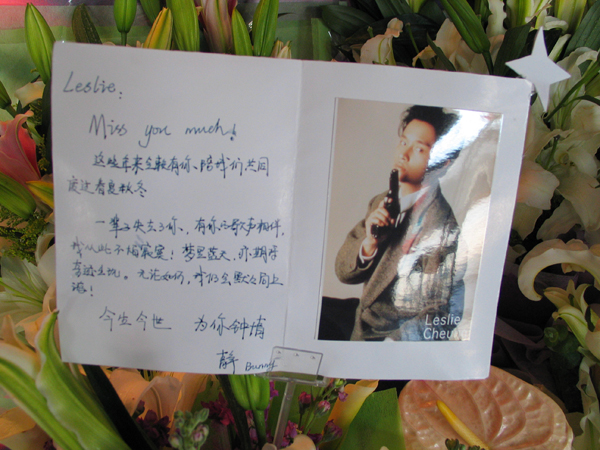 Leslie:
Miss you much!
这些年来全赖有你、陪我们共同
度过春夏秋冬
一辈子失去了你、有你的歌声相伴,
我从此不怕寂寞! 梦里蓝天,亦期待
无论如何,我们会默
今生今世 为你钟情
静 Bunny
Leslie
Cheung